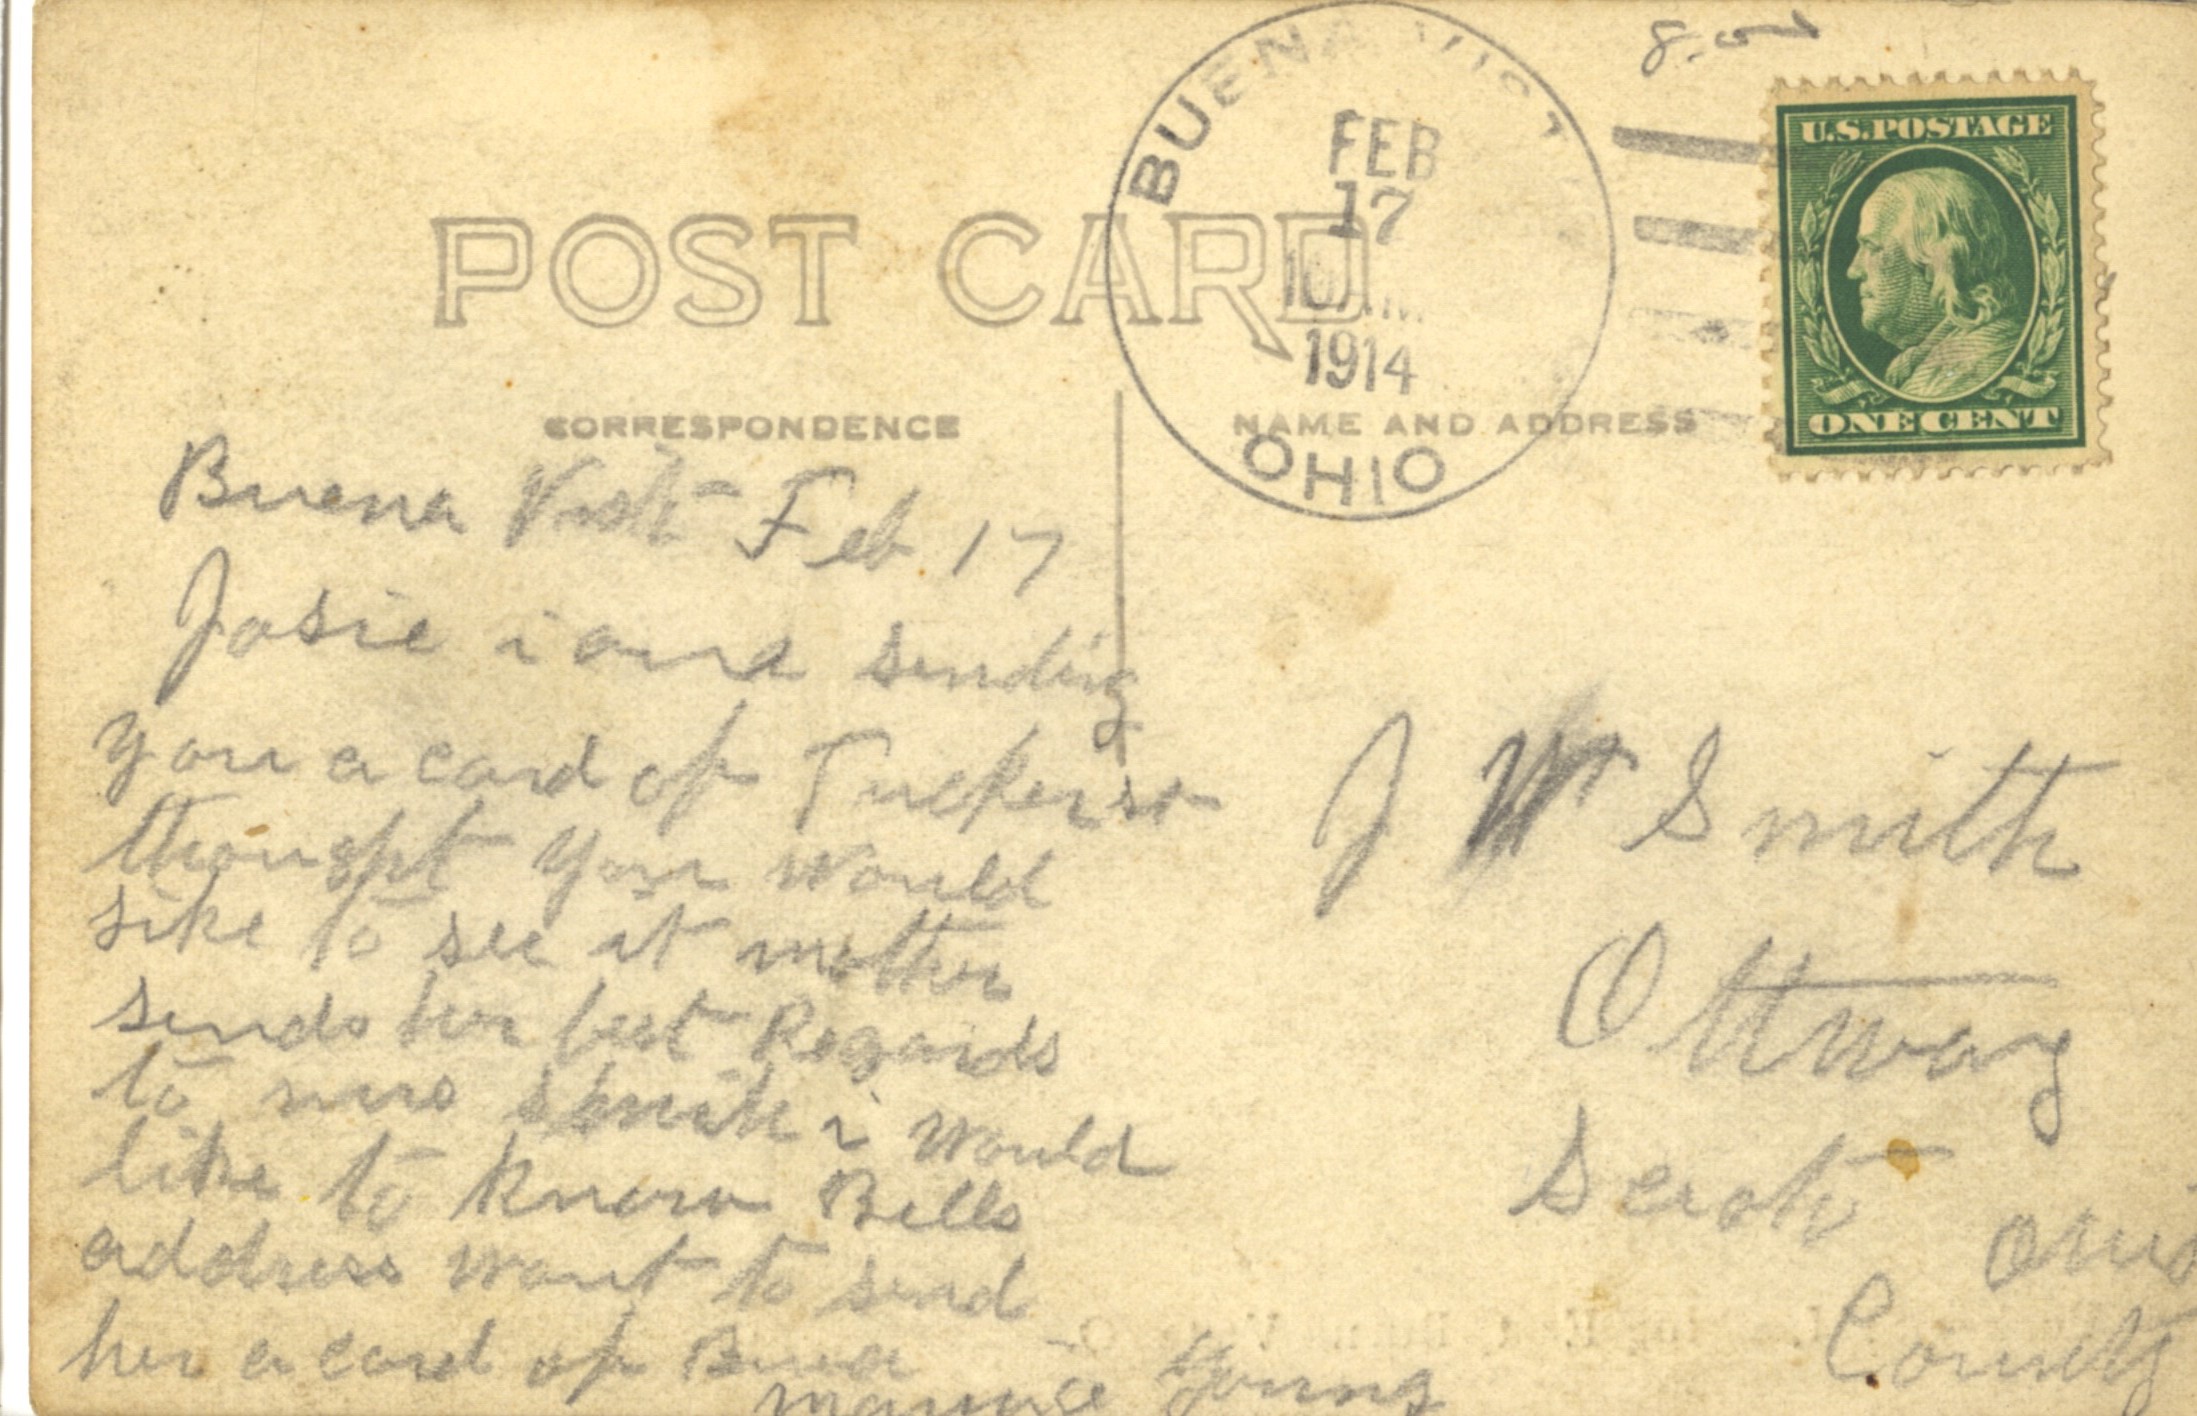 8.00
BUENA VIST
FEB
17
10 A.M.
1914
OHIO
U.S.POSTAGE
ONE CENT
POST CARD
CORRESPONDENCE
NAME AND ADDRESS
Buena Vist Feb 17
Josie i am sending
you a card of
thought you would
like to see it mother
sends her best Regards
to mrs Smith i would
like to know Bells
address want to send
her a card of Buna
Young
J W Smith
Ottway
Scioto
Ohio
County